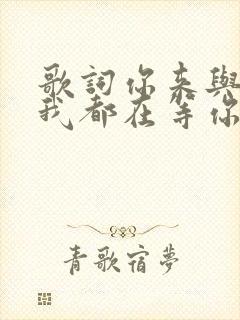 歌詞你來與
我都在等你
青歌宿夢